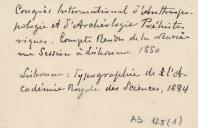 Congrès International d'Anthropo-
pologie et d'Archéologie Préhisto-
riques. Compte Rendu de la neuviè-
me Session à Lisbonne 1880
Lisbonne: Typographie de l'A-
cadémie Royale des Sciences, 1884
AS 125 (1)